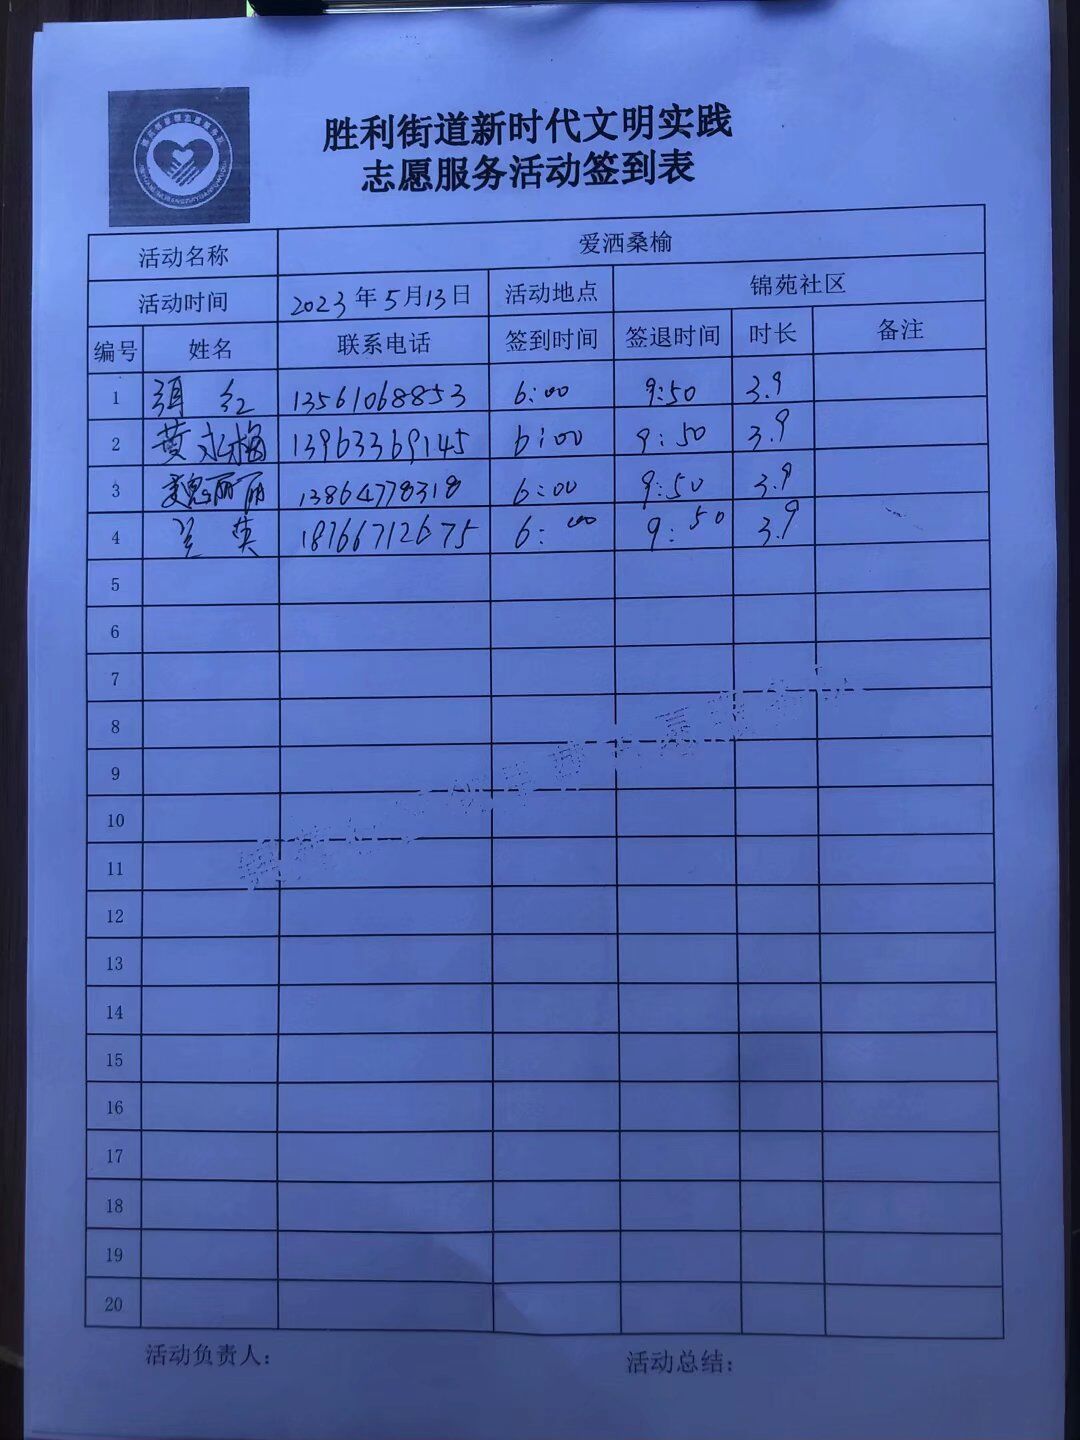 胜利街道新时代文明实践
志愿服务活动签到表
活动名称 爱洒桑榆
活动时间 2023年5月13日 活动地点 锦苑社区
编号 姓名 联系电话 签到时间 签退时间 时长 备注
1 红 13561068853 6:00 9:50 3.9
2 黄永梅 13963369145 6:00 9:50 3.9
3 魏丽丽 13864778318 6:00 9:50 3.9
4 英 18766712675 6:00 9:50 3.9
5
6
7
8
9
10
11
12
13
14
15
16
17
18
19
20
活动负责人: 活动总结: